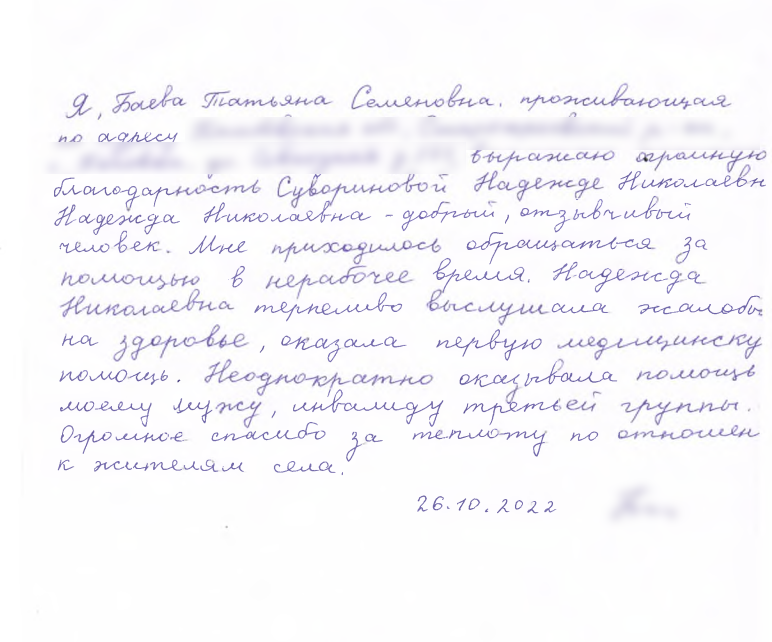 Я, Баева Татьяна Семеновна. проживающая
по адресу
выражаю огромную
благодарность Суворинovой Надежде Николаевн
Надежда Николаевна - добрый, отзывчивый
человек. Мне приходилось обращаться за
помощью в нерабочее время. Надежда
Николаевна терпеливо выслушала жалобы
на здоровье, оказала первую медицинску
помощь. Неоднократно оказывала помощь
моему мужу, инвалиду третьей группы.
Огромное спасибо за теплоту по отношен
к жителям села.
26.10.2022